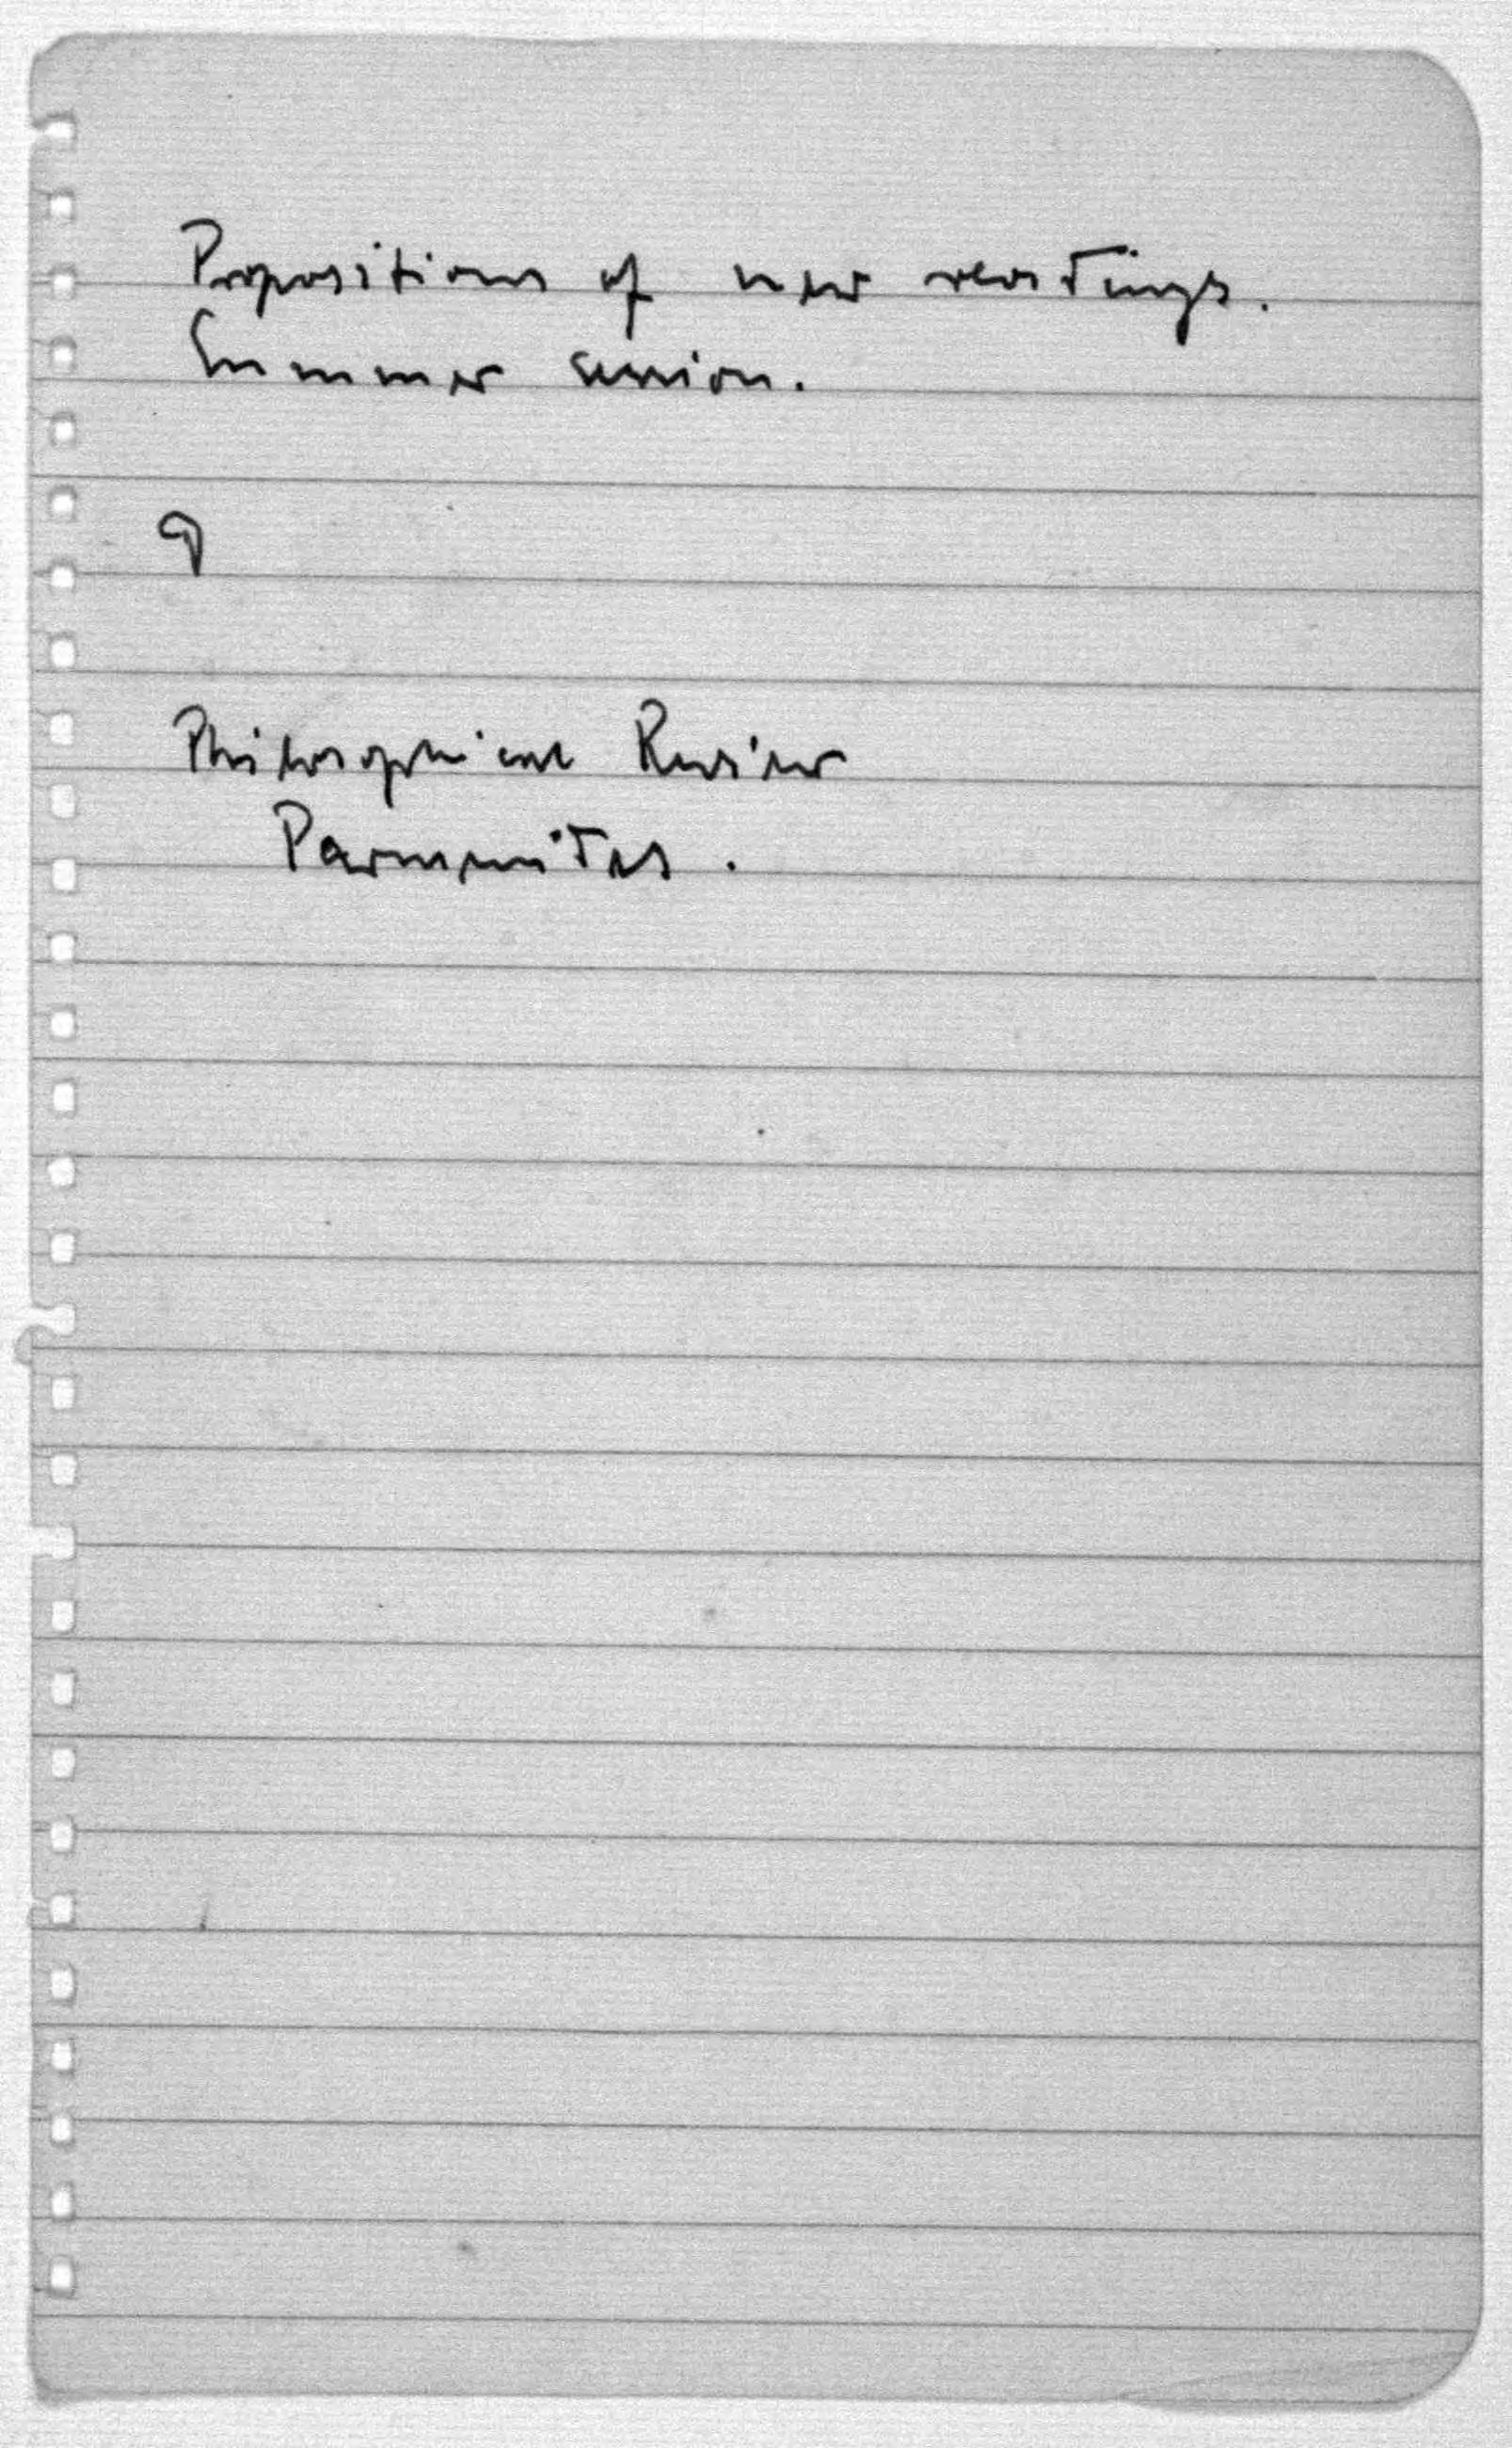 Propositions of new readings.
Summer session.
Philosophical Review
Parmenides.